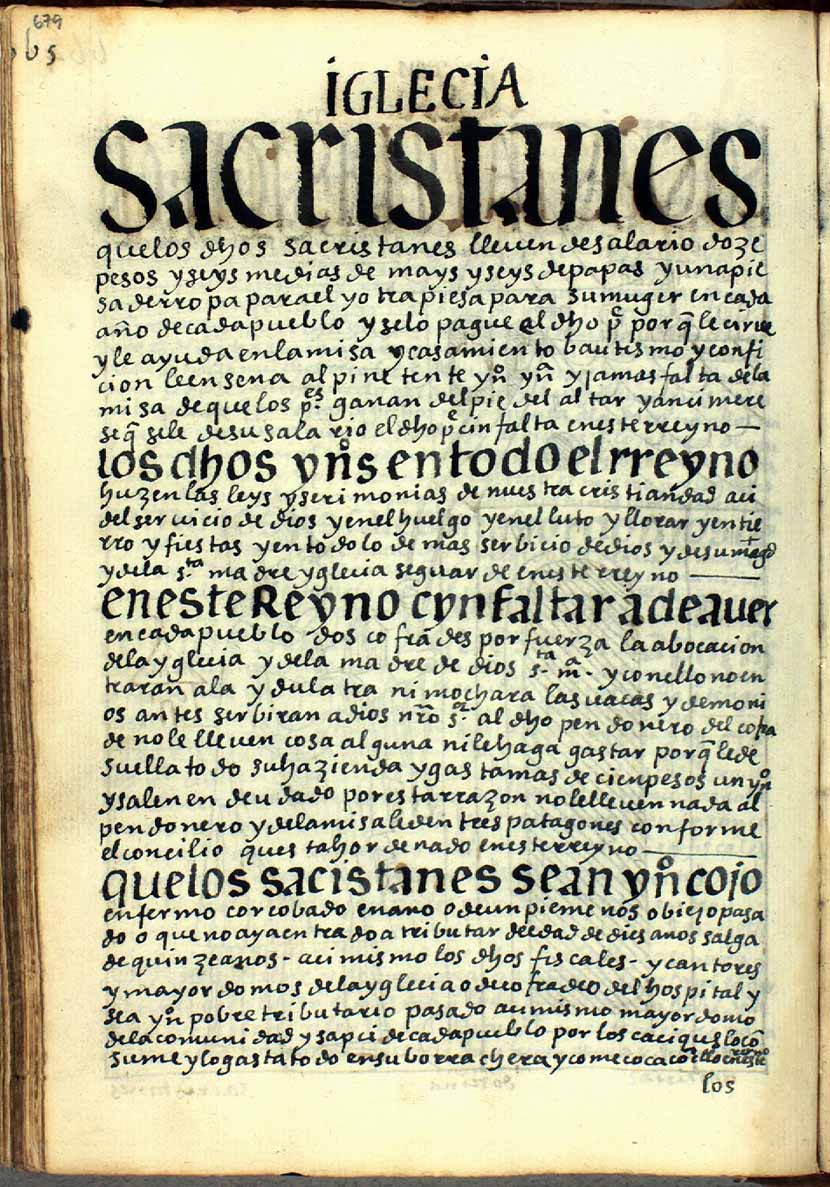 679
iGLECIA
sacristanes
que los dhos sacristanes lleven de salario doze
pesos y seys medias de mays y seys de papas y una pie
sa de rropa para el y otra piesa para su muger en cada
año de cada pueblo y se lo pague el dho pe porq̃ le cirue
y le ayuda en la misa y casamiento bautismo y confi
cion le ensena al pinetente yno yna y jamas falta de la
misa de que los pes ganan del pie del altar y anci mere
seq̃ se le de su salario el dho pe cin falta en este rreyno —
los dhos yn̊s en todo el rreyno
huzen las leys y serimonias de nuestra cristiandad aci
del servicio de dios y en el huelgo y en el luto y llorar y entie
rro y fiestas y en todo lo demas serbicio de dios y de su magd
y de la sta madre yglecia se guarde en este rreyno —
en este Reyno cyn faltar à de auer
en cada pueblo dos cofrades por fuerza la abocacion
de la yglecia y de la madre de dios sta ma y con ello no en
traran a la ydulatra ni mochara las uacas y demoni
os antes serbiran a dios nro̅ sr al dho pendonero del cofra
de no le lleven cosa alguna ni le haga gastar porq̃ le de
suella todo su hazienda y gasta mas de cien pesos un yno
y salen endeudado por esta rrazon no le lleven nada al
pendonero y de la misa le den tres patagones conforme
el concilio q̃ uesta hordenado en este rreyno —
que los sacistanes sean yn̊ cojo
enfermo corcobado enano o de un pie menos o biejo pasa
do o que no aya entrado a tributar de edad de dies anos salga
de quinze anos - aci mismo los dhos fiscales - y cantores
y mayordomos de la yglecia o de cofradeo del hospital y
sea yno pobre tributario pasado aci mismo mayordomo
de la comunidad y sapci de cada pueblo por los caciqus lo cõ
sume y lo gasta todo en su borrachera y come coca cõ ello en este rreyno
los